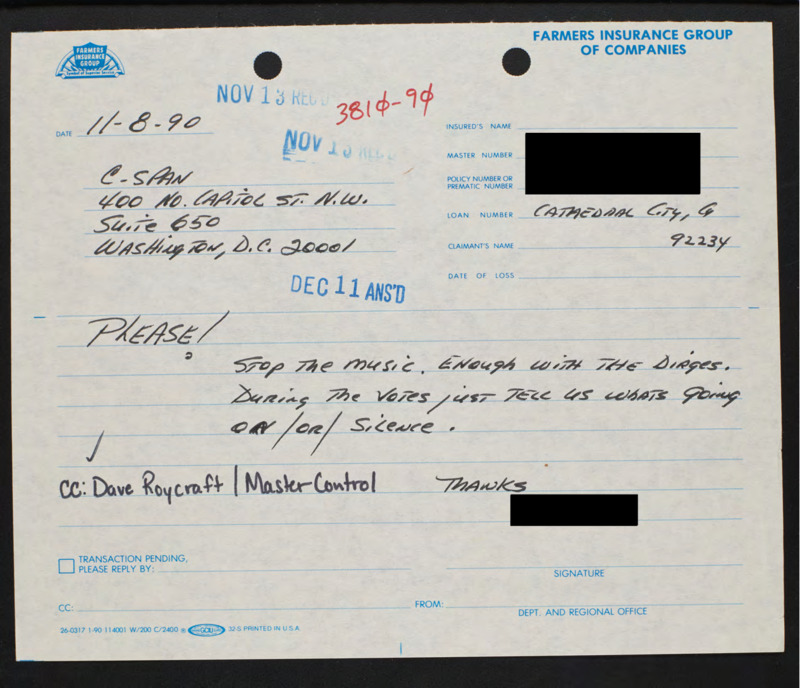 FARMERS INSURANCE GROUP
OF COMPANIES
FARMERS
INSURANCE
GROUP
Symbol of Superior Service
NOV 13 REC'D
3810-90
NOV 13 REC'D
DATE 11-8-90
C-SPAN
400 NO. CAPITOL ST. N.W.
Suite 650
WASHINGTON, D.C. 20001
INSURED'S NAME
MASTER NUMBER
POLICY NUMBER OR
PREMATIC NUMBER
LOAN NUMBER CATHEDRAL CITY, CA
CLAIMANT'S NAME 92234
DATE OF LOSS
DEC 11 ANS'D
PLEASE!
STOP THE MUSIC. ENOUGH WITH THE DIRGES.
DURING THE VOTES JUST TELL US WHATS GOING
ON /OR/ SILENCE.
CC: Dave Roycraft / Master Control
THANKS
TRANSACTION PENDING,
PLEASE REPLY BY:
SIGNATURE
CC:
FROM:
DEPT. AND REGIONAL OFFICE
26-0317 1-90 114001 W/200 C/2400 32-S PRINTED IN U.S.A.